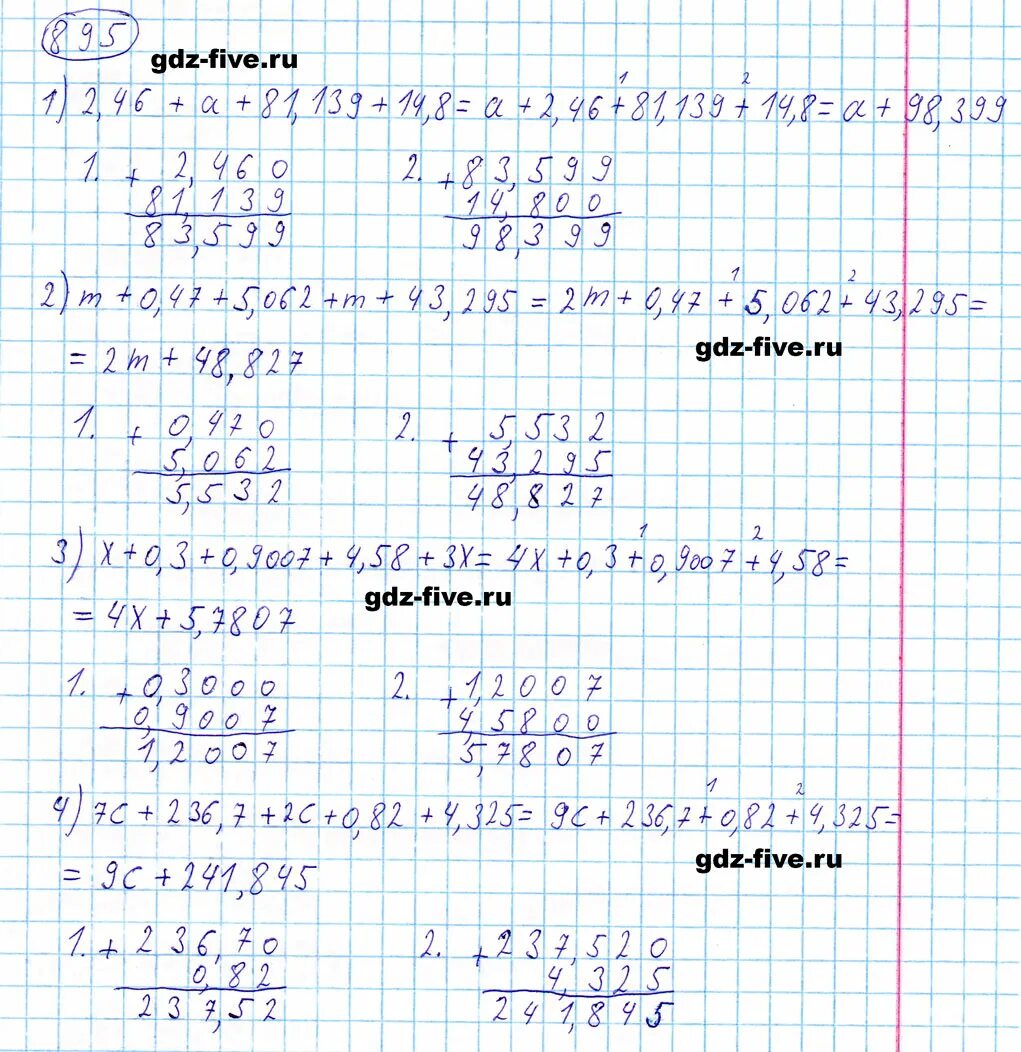 895
gdz-five.ru
1) 2,46 + a + 81,139 + 14,8 = a + 2,46 +¹ 81,139 +² 14,8 = a + 98,399
1. + 2,460 2. + 83,599
81,139 14,800
83,599 98,399
2) m + 0,47 + 5,062 + m + 43,295 = 2m + 0,47 +¹ 5,062 +² 43,295 =
= 2m + 48,827 gdz-five.ru
1. + 0,470 2. + 5,532
5,062 43,295
5,532 48,827
3) x + 0,3 + 0,9007 + 4,58 + 3x = 4x + 0,3 +¹ 0,9007 +² 4,58 =
= 4x + 5,7807 gdz-five.ru
1. + 0,3000 2. + 1,2007
0,9007 4,5800
1,2007 5,7807
4) 7c + 236,7 + 2c + 0,82 + 4,325 = 9c + 236,7 +¹ 0,82 +² 4,325 =
= 9c + 241,845 gdz-five.ru
1. + 236,70 2. + 237,520
0,82 4,325
237,52 241,845